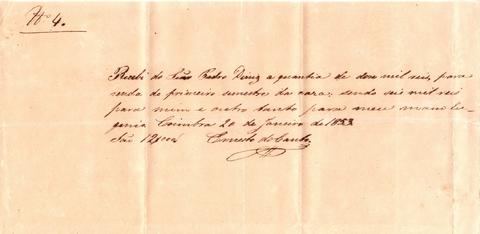 Nº 4.
Recebi do João Pedro Diniz a quantia de doze mil reis, para
renda do primeiro semestre da caza: sendo seis mil reis
para mim e outro tanto para meu mano Eu-
genio Coimbra 20 de Janeiro de 1853
São 12$000 Ernesto do Canto